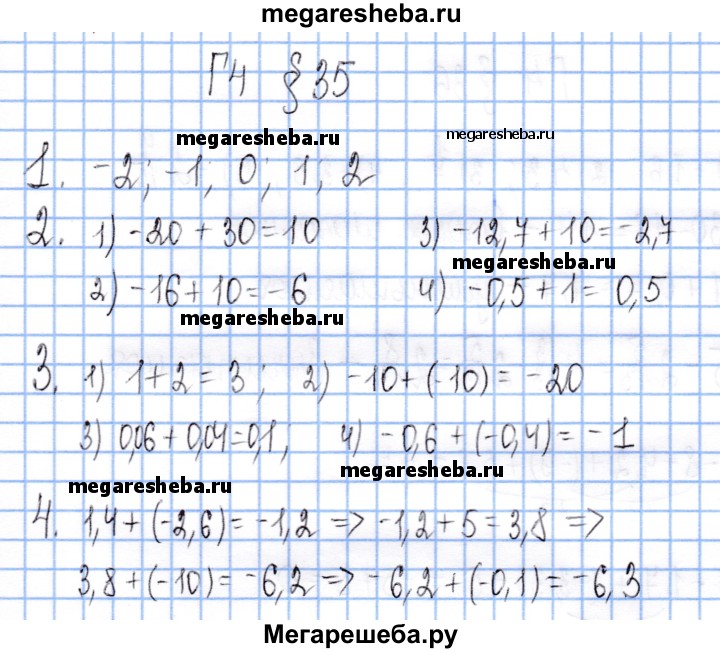 megaresheba.ru
Г4 § 35
megaresheba.ru megaresheba.ru
1. -2; -1; 0; 1; 2
2. 1) -20 + 30 = 10 3) -12,7 + 10 = -2,7
megaresheba.ru
2) -16 + 10 = -6 4) -0,5 + 1 = 0,5
megaresheba.ru
3. 1) 1 + 2 = 3; 2) -10 + (-10) = -20
3) 0,06 + 0,04 = 0,1; 4) -0,6 + (-0,4) = -1
megaresheba.ru
megaresheba.ru
4. 1,4 + (-2,6) = -1,2 => -1,2 + 5 = 3,8 =>
3,8 + (-10) = -6,2 => -6,2 + (-0,1) = -6,3
Мегарешеба.ру